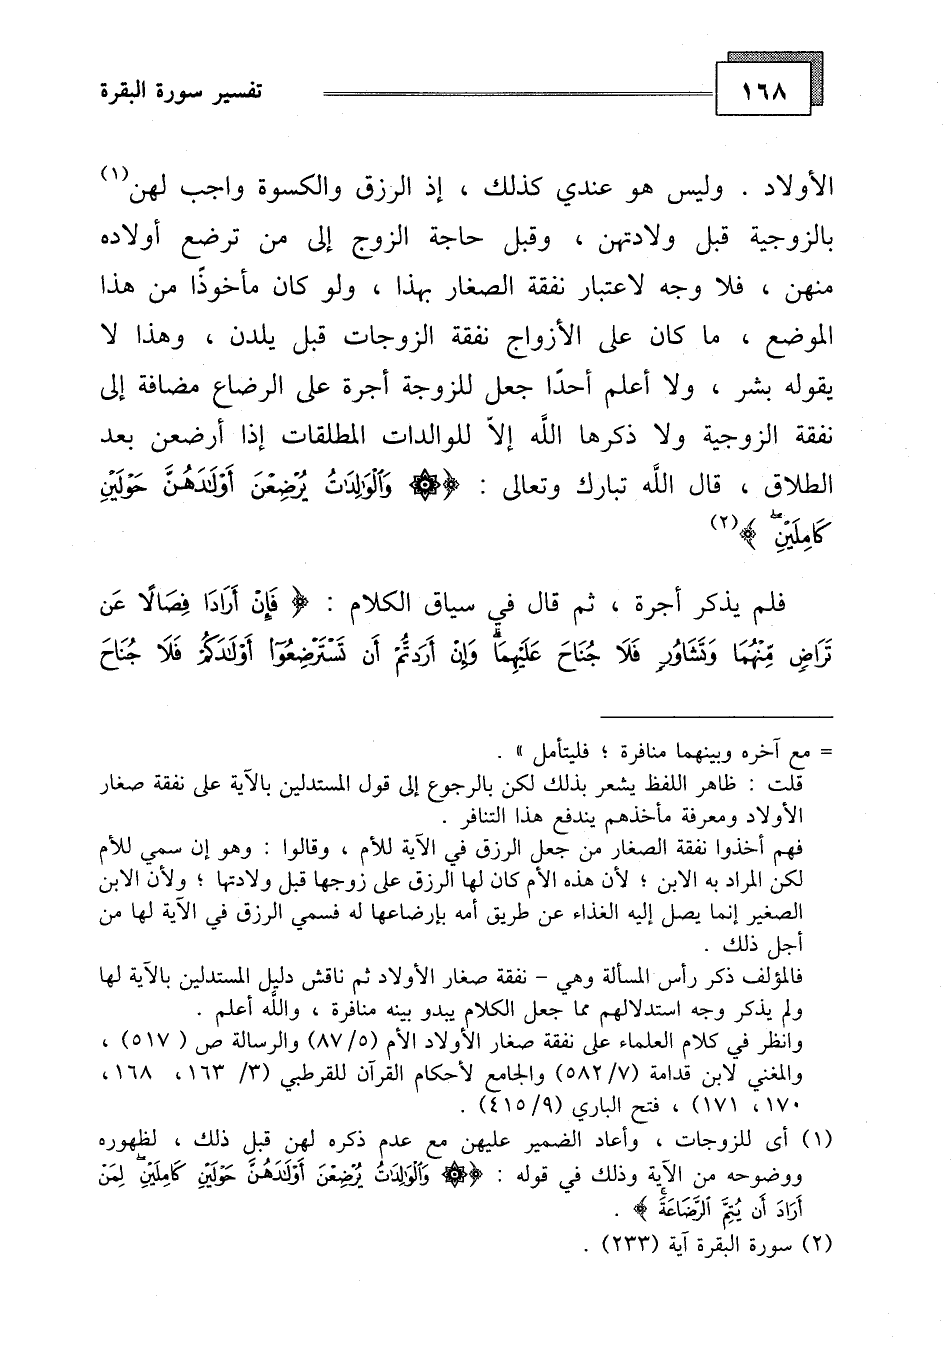 ١٦٨ تفسير سورة البقرة
الأولاد . وليس هو عندي كذلك ، إذ الرزق والكسوة واجب لهن(١)
بالزوجية قبل ولادتهن ، وقبل حاجة الزوج إلى من ترضع أولاده
منهن ، فلا وجه لاعتبار نفقة الصغار بهذا ، ولو كان مأخوذًا من هذا
الموضع ، ما كان على الأزواج نفقة الزوجات قبل يلدن ، وهذا لا
يقوله بشر ، ولا أعلم أحدًا جعل للزوجة أجرة على الرضاع مضافة إلى
نفقة الزوجية ولا ذكرها اللَّه إلاّ للوالدات المطلقات إذا أرضعن بعد
الطلاق ، قال اللَّه تبارك وتعالى : ﴿ ۞ وَٱلْوَٰلِدَٰتُ يُرْضِعْنَ أَوْلَٰدَهُنَّ حَوْلَيْنِ
كَامِلَيْنِ ۖ ﴾(٢)
فلم يذكر أجرة ، ثم قال في سياق الكلام : ﴿ فَإِنْ أَرَادَا فِصَالًا عَن
تَرَاضٍ مِّنْهُمَا وَتَشَاوُرٍ فَلَا جُنَاحَ عَلَيْهِمَا ۗ وَإِنْ أَرَدتُّمْ أَن تَسْتَرْضِعُوٓا۟ أَوْلَٰدَكُمْ فَلَا جُنَاحَ
= مع آخره وبينهما منافرة ؛ فليتأمل » .
قلت : ظاهر اللفظ يشعر بذلك لكن بالرجوع إلى قول المستدلين بالآية على نفقة صغار
الأولاد ومعرفة مأخذهم يندفع هذا التنافر .
فهم أخذوا نفقة الصغار من جعل الرزق في الآية للأم ، وقالوا : وهو إن سمي للأم
لكن المراد به الابن ؛ لأن هذه الأم كان لها الرزق على زوجها قبل ولادتها ؛ ولأن الابن
الصغير إنما يصل إليه الغذاء عن طريق أمه بإرضاعها له فسمي الرزق في الآية لها من
أجل ذلك .
فالمؤلف ذكر رأس المسألة وهي - نفقة صغار الأولاد ثم ناقش دليل المستدلين بالآية لها
ولم يذكر وجه استدلالهم مما جعل الكلام يبدو بينه منافرة ، واللَّه أعلم .
وانظر في كلام العلماء على نفقة صغار الأولاد الأم (٨٧/٥) والرسالة ص ( ٥١٧) ،
والمغني لابن قدامة (٥٨٢/٧) والجامع لأحكام القرآن للقرطبي (٣/ ١٦٣، ١٦٨،
١٧٠، ١٧١) ، فتح الباري (٤١٥/٩) .
(١) أى للزوجات ، وأعاد الضمير عليهن مع عدم ذكره لهن قبل ذلك ، لظهوره
ووضوحه من الآية وذلك في قوله : ﴿ ۞ وَٱلْوَٰلِدَٰتُ يُرْضِعْنَ أَوْلَٰدَهُنَّ حَوْلَيْنِ كَامِلَيْنِ ۖ لِمَنْ
أَرَادَ أَن يُتِمَّ ٱلرَّضَاعَةَ ۚ ﴾ .
(٢) سورة البقرة آية (٢٣٣) .